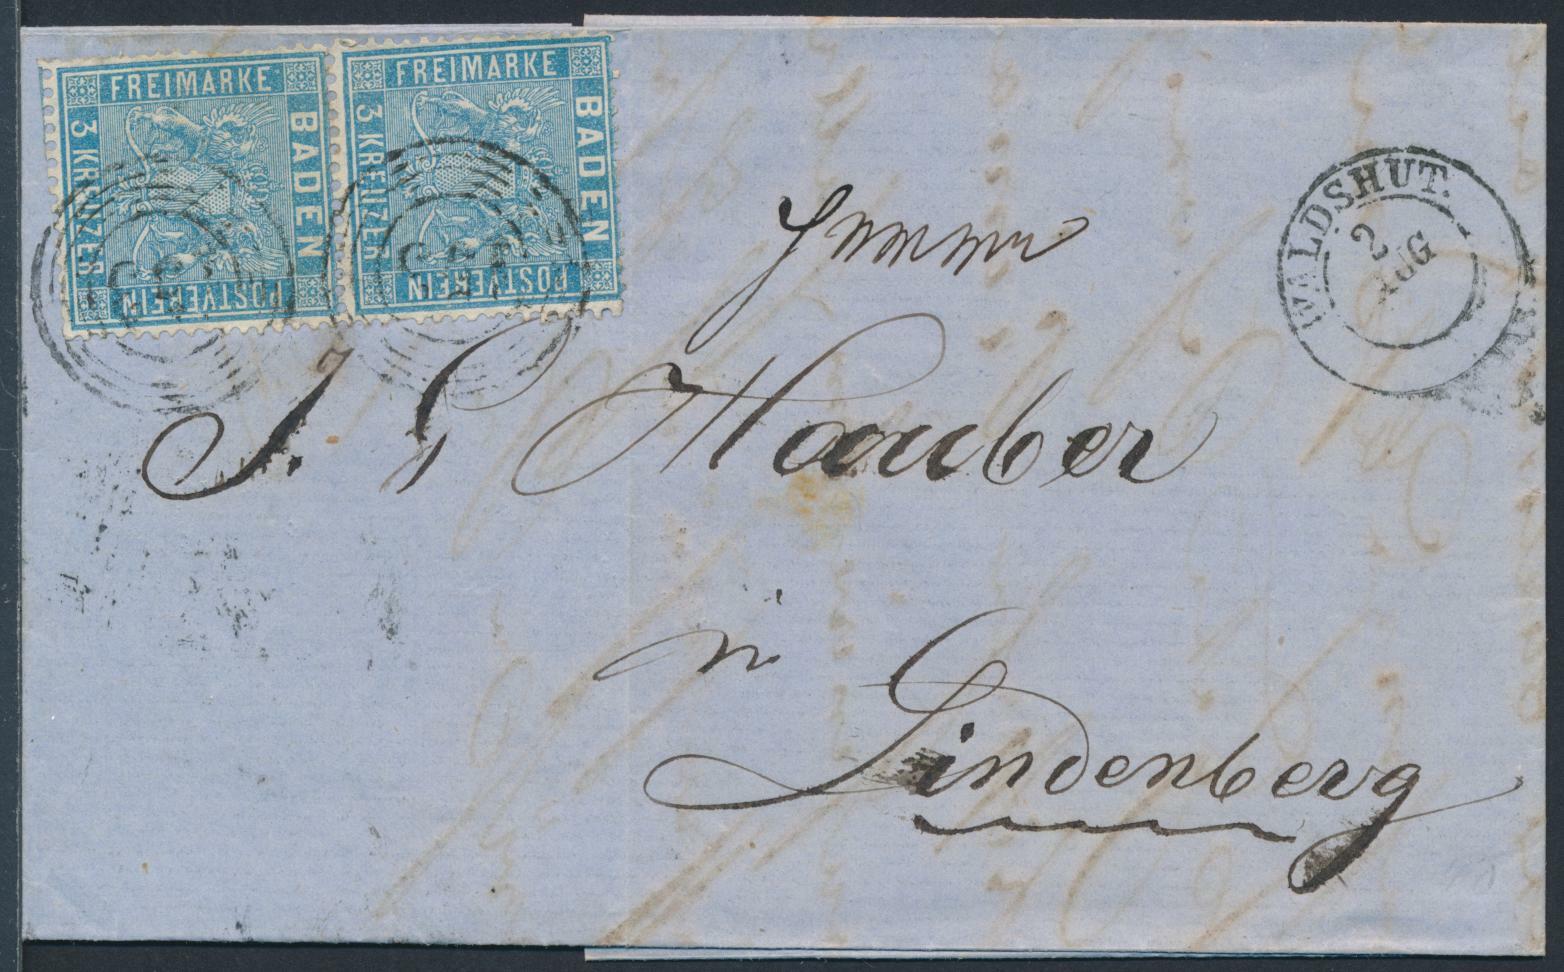 FREIMARKE
BADEN
3 KREUZER
POSTVEREIN
FREIMARKE
BADEN
3 KREUZER
POSTVEREIN
WALDSHUT.
2
AUG
J. G Hauber
in
Lindenberg